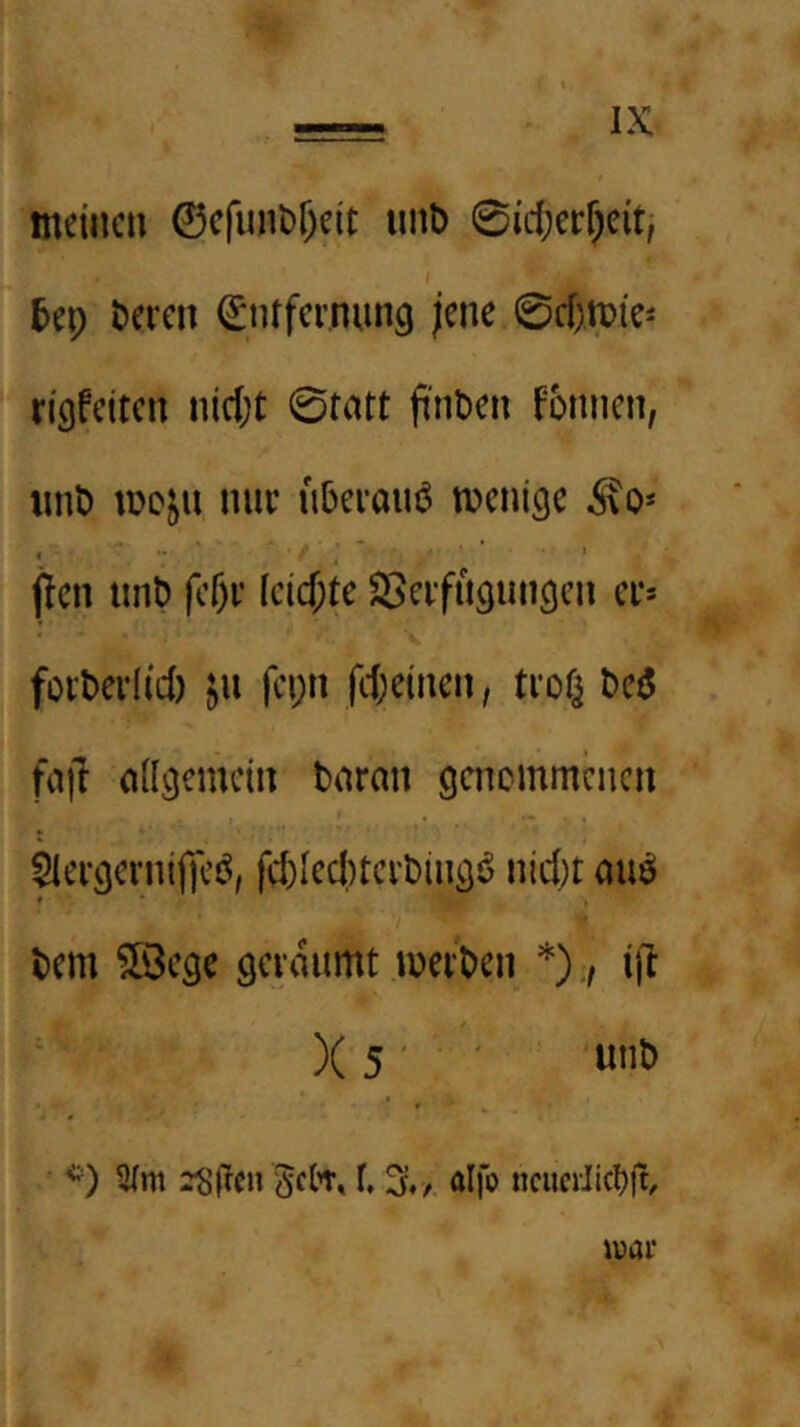 IX
meinen Gesundheit und Sicherheit,
bey deren Entfernung jene Schwie-
rigkeiten nicht Statt finden können,
und wozu nur überaus wenige Ko-
sten und sehr leichte Verfügungen er-
forderlich zu seyn scheinen, trotz des
fast allgemein daran genommenen
Aergernisses, schlechterdings nicht aus
dem Wege geräumt werden *), ist
)( 5 und
*) Am 28sten Febr. l. J., also neuerlichst,
war